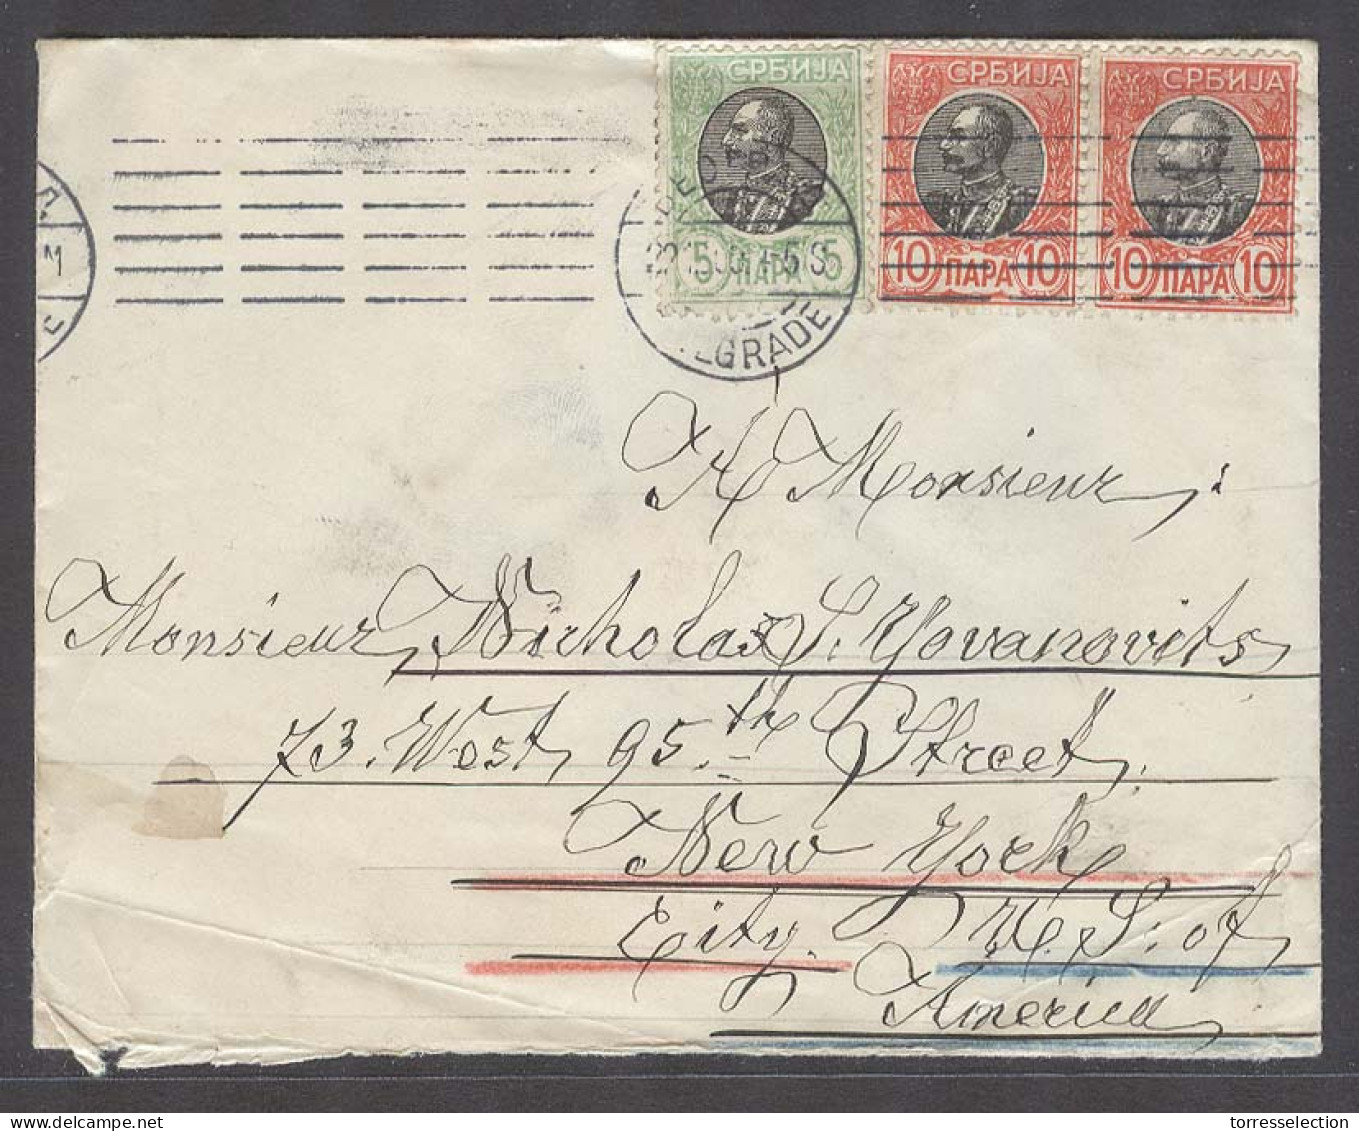 СРБИЈА СРБИЈА СРБИЈА
5 ПАРА 5 10 ПАРА 10 10 ПАРА 10
GRADE
A Monsieur:
Monsieur Nicholas S. Yovanovits
73. West 95th Street.
New York
City. U. S. of
America
torresselection